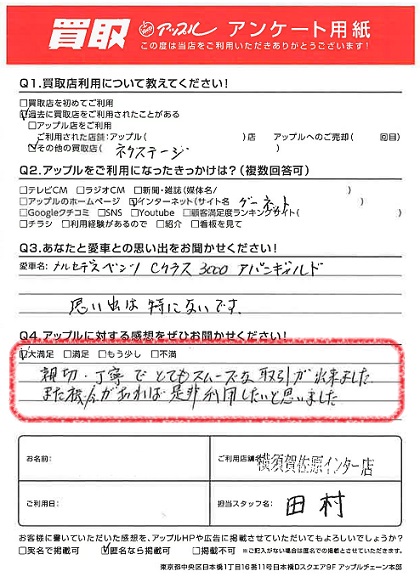 買取 アップル アンケート用紙
この度は当店をご利用いただきありがとうございます!
Q1.買取店利用について教えてください!
□買取店を初めてご利用
☑過去に買取店をご利用されたことがある
□アップル店をご利用
ご利用された店舗:アップル( )店 アップルへのご売却( 回目)
☑その他の買取店( ネクステージ )
Q2.アップルをご利用になったきっかけは?(複数回答可)
□テレビCM □ラジオCM □新聞・雑誌(媒体名/ )
□アップルのホームページ ☑インターネット(サイト名 グーネット )
□Googleクチコミ □SNS □Youtube □顧客満足度ランキングサイト( )
□チラシ □利用経験があるので □紹介 □看板を見て
Q3.あなたと愛車との思い出をお聞かせください!
愛車名: メルセデスベンツ Cクラス 3000 アバンギャルド
思い出は特にないです。
Q4.アップルに対する感想をぜひお聞かせください!
☑大満足 □満足 □もう少し □不満
親切・丁寧でとてもスムーズな取引が出来ました
また機会があれば是非利用したいと思いました
お名前: ご利用店舗 横須賀佐原インター店
ご利用日: 担当スタッフ名: 田村
お客様に書いていただいた感想を、アップルHPや広告に掲載させていただいてもよろしいでしょうか?
□実名で掲載可 ☑匿名なら掲載可 □掲載不可 ※ご記入がない場合は匿名での掲載とさせていただきます。
東京都中央区日本橋1丁目16番11号日本橋Dスクエア9F アップルチェーン本部